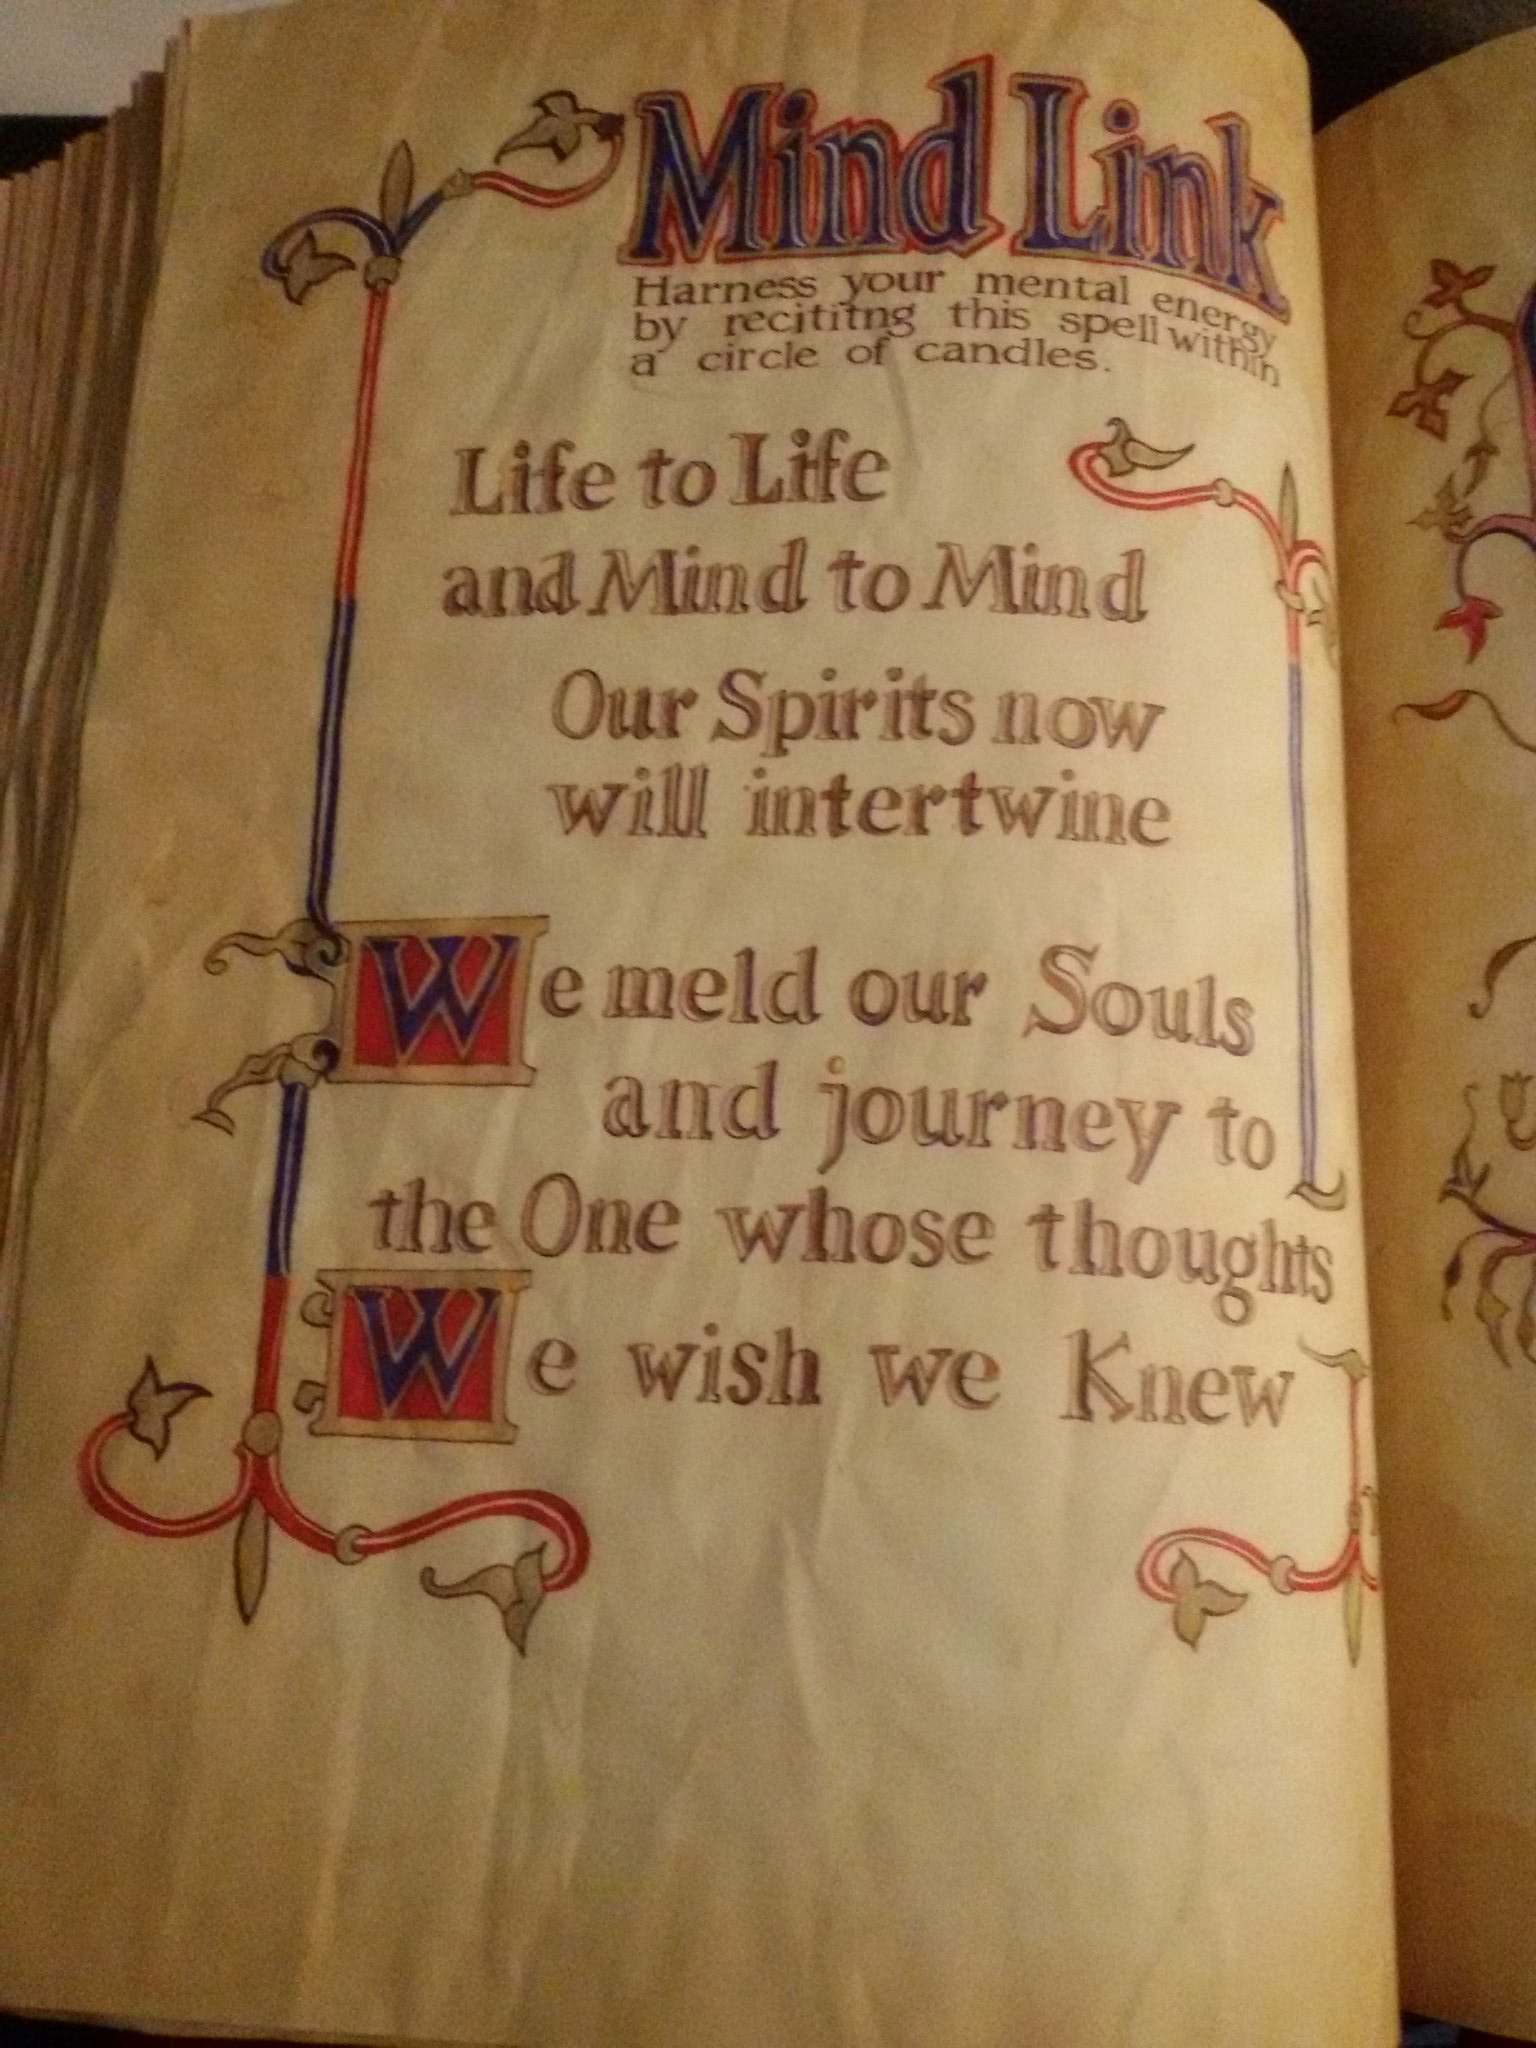 Mind Link
Harness your mental energy
by recititng this spell within
a circle of candles.
Life to Life
and Mind to Mind
Our Spirits now
will intertwine
We meld our Souls
and journey to
the One whose thoughts
We wish we Knew